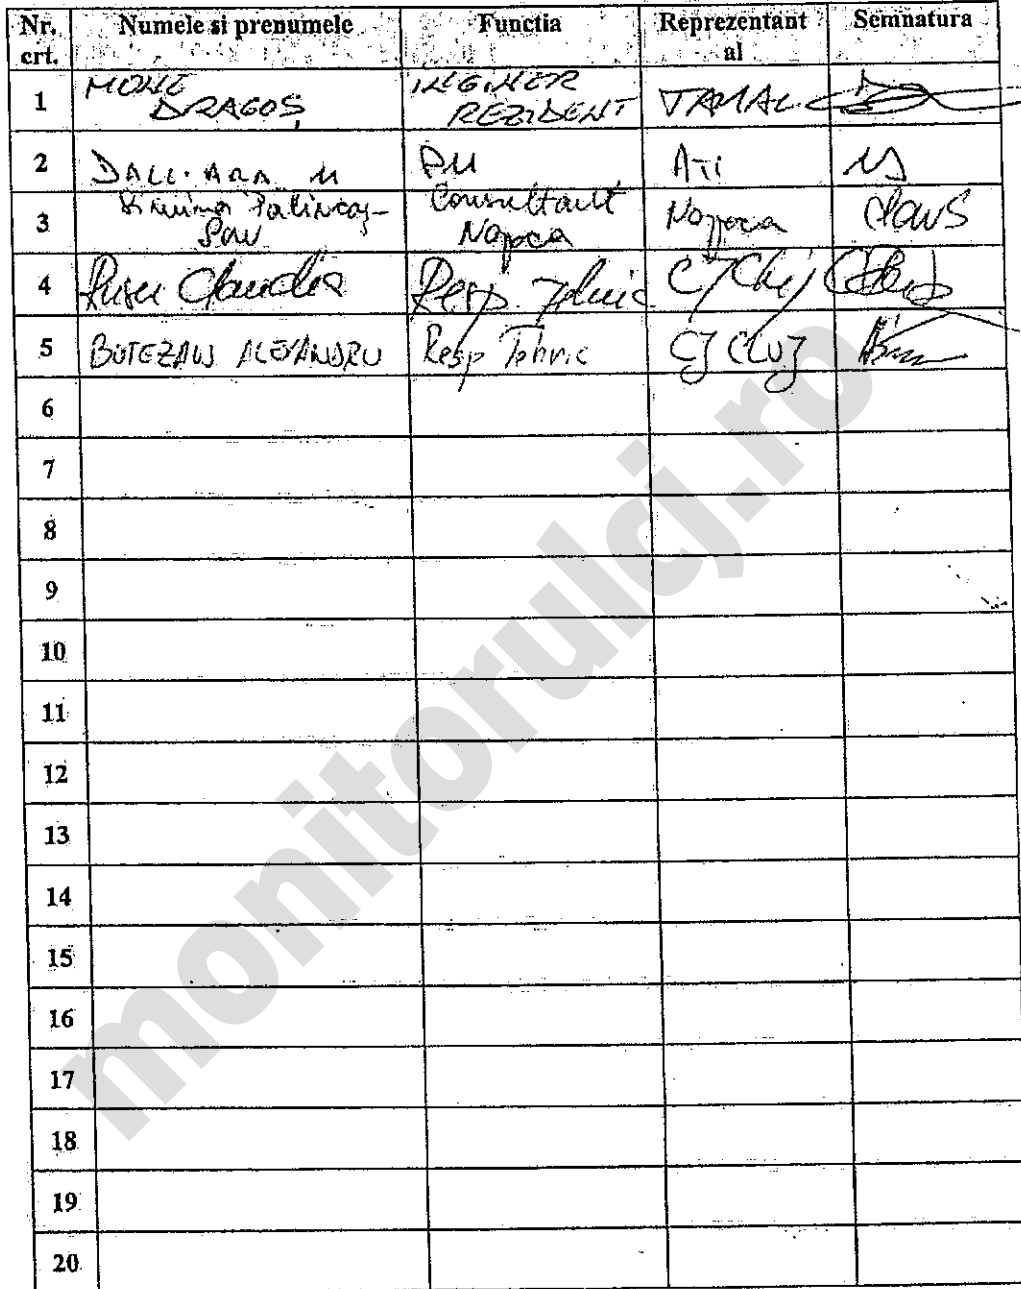 Nr. crt. Numele si prenumele Functia Reprezentant al Semnatura
1 DRAGOȘ INGINER REZIDENT
2 DALL'ARA M PM ATI
3 Palincaș- Pau Consultant Napoca Napoca
4 Rusu Claudia Resp. Tehnic CJ Cluj
5 BOTEZAN ALEXANDRU Resp Tehnic CJ CLUJ
6
7
8
9
10
11
12
13
14
15
16
17
18
19
20
monitorulcj.ro